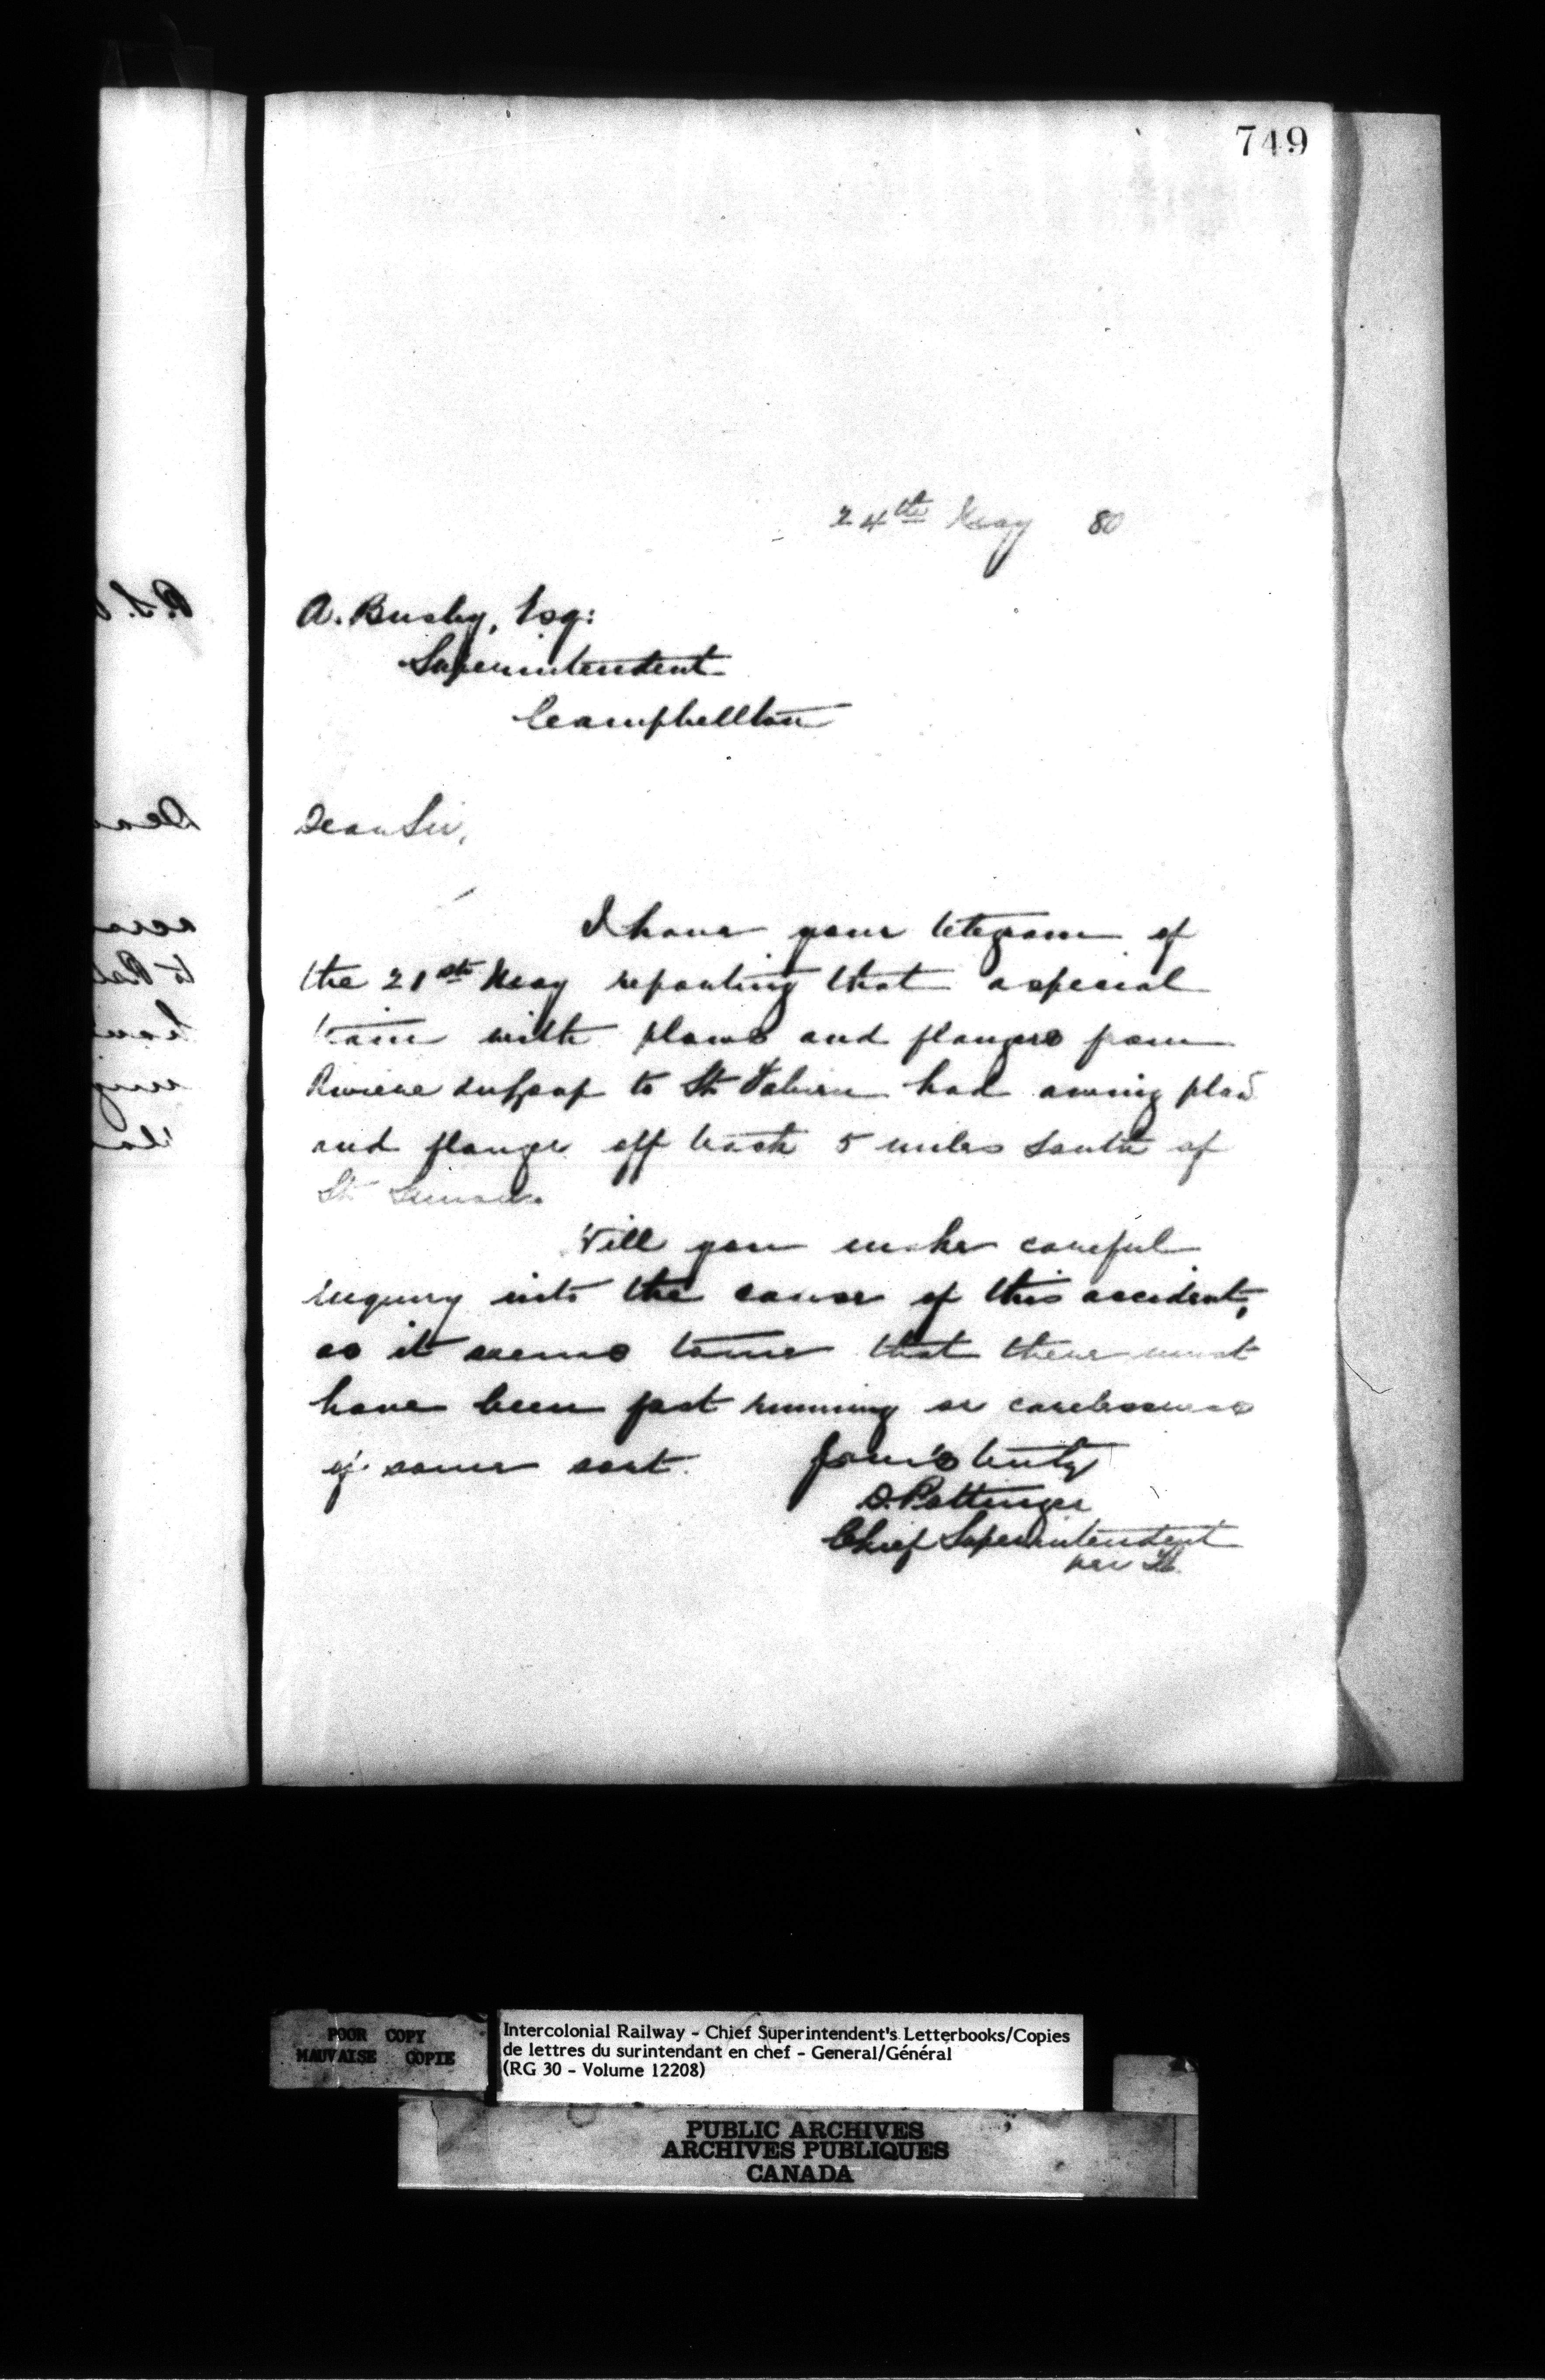 749
24th May 80
A. Busby, Esq:
Superintendent
Campbellton
Dear Sir,
I have your telegram of
the 21st May reporting that a special
train with plows and flangers from
Riviere du Loup to St had wing plow
and flanger off track 5 miles south of
St
Will you make careful
inquiry into the cause of this accident,
as it seems to me that there must
have been fast running or carelessness
of some sort. Yours truly
D. Pottinger
Chief Superintendent
per
P.S.
Dear
to
POOR COPY
MAUVAISE COPIE
Intercolonial Railway - Chief Superintendent's Letterbooks/Copies
de lettres du surintendant en chef - General/Général
(RG 30 - Volume 12208)
PUBLIC ARCHIVES
ARCHIVES PUBLIQUES
CANADA